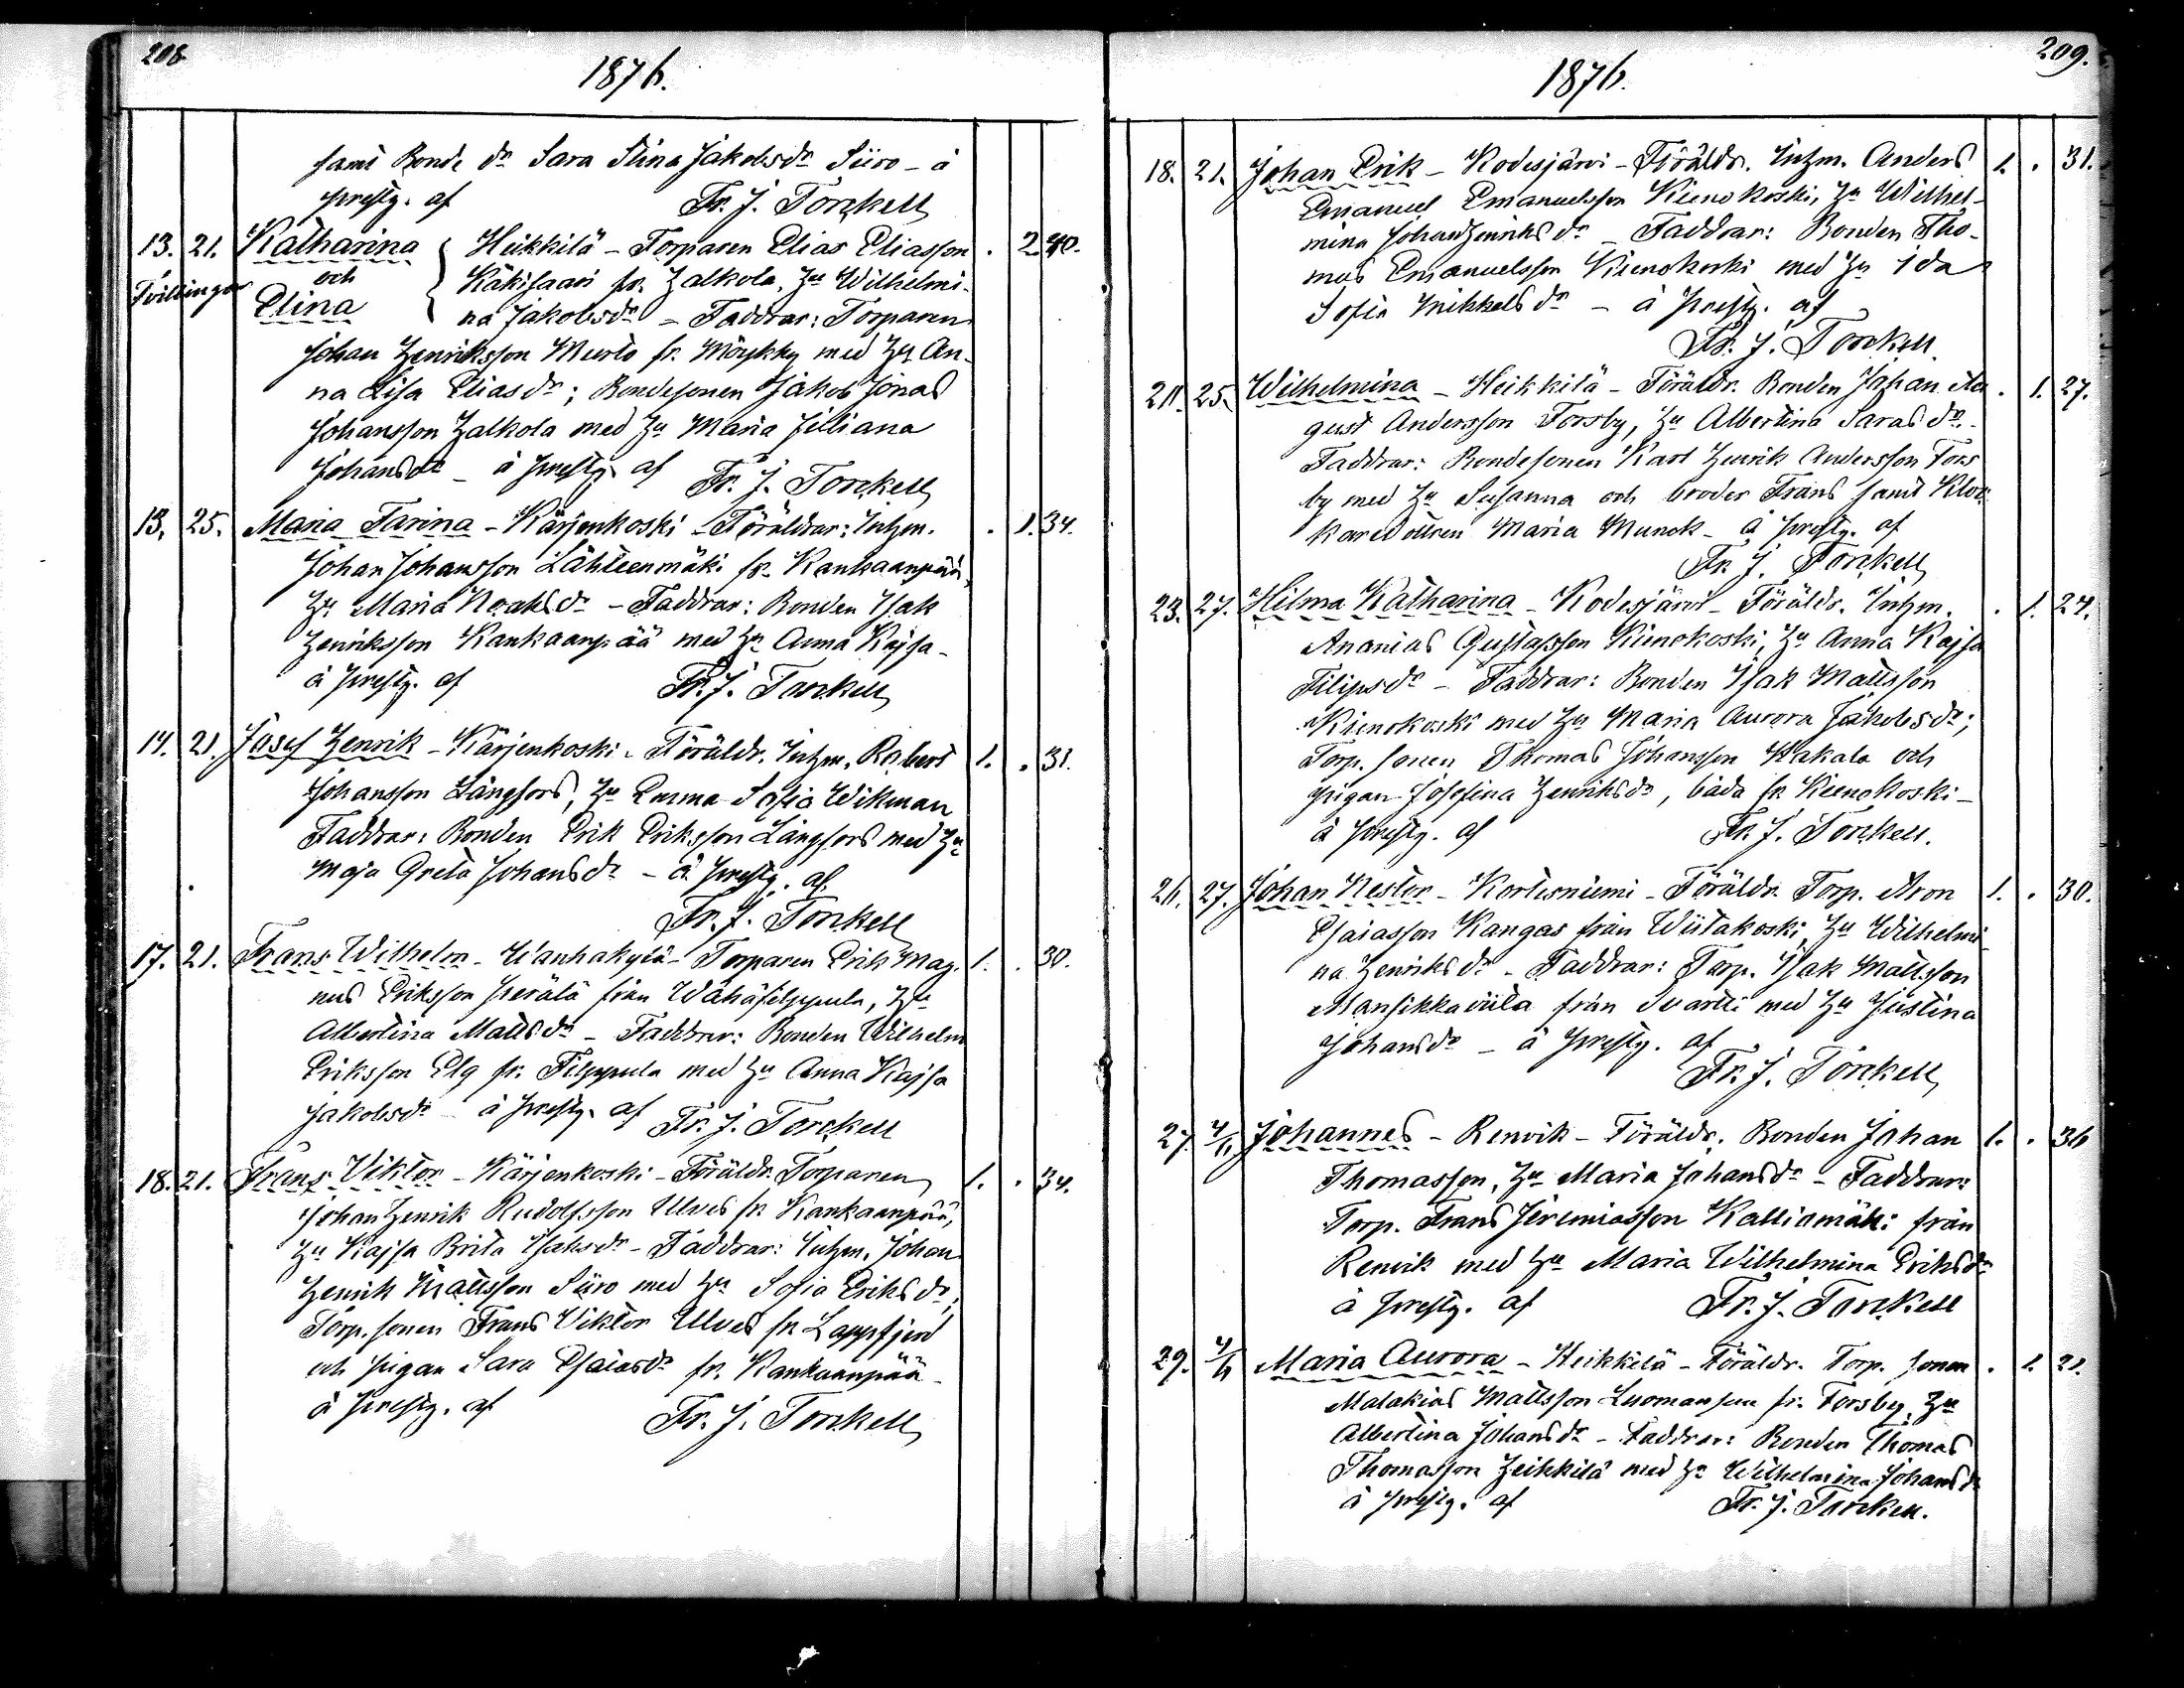 208.
1876.
samt Bonde dr Sara Stina Jakobsdr Siiro - à
prestg. af Fr. J. Torckell
13. 21. Katharina Heikkilä - Torparen Elias Eliasson . 2. 40.
Tvillingar och Käkisaari fr. Halkola, Hu Wilhelmi-
Elina na Jakobsdr - Faddrar: Torparen
Johan Henriksson Murto fr. Möykky med Hu An-
na Lisa Eliasdr; Bondesonen Jakob Jonas
Johansson Halkola med Hu Maria Juliana
Johansdr - à prestg. af Fr. J. Torckell
13. 25. Maria Farina - Kärjenkoski - Föräldrar: Inhm. . 1. 34.
Johan Johansson Lähteenmäki fr. Kankaanpää,
Hu Maria Noaksdr - Faddrar: Bonden Isak
Henriksson Kankaanpää med Hu Anna Kajsa -
à prestg. af Fr. J. Torckell
14. 21. Josef Henrik - Kärjenkoski - Föräldr. Inhm. Robert 1. . 31.
Johansson Långfors, Hu Emma Sofia Wikman
Faddrar: Bonden Erik Eriksson Långfors med Hu
Maja Greta Johansdr - à prestg. af
Fr. J. Torckell
17. 21. Frans Wilhelm - Wanhakylä - Torparen Erik Mag- 1. . 30.
nus Eriksson Perälä från Wähäfilppula, Hu
Albertina Mattsdr - Faddrar: Bonden Wilhelm
Eriksson Elg fr. Filppula med Hu Anna Kajsa
Jakobsdr - à prestg. af Fr. J. Torckell
18. 21. Frans Viktor - Kärjenkoski - Föräldr. Torparen 1. . 34.
Johan Henrik Rudolfsson Ulves fr. Kankaanpää,
Hu Kajsa Brita Isaksdr - Faddrar: Inhm. Johan
Henrik Mattsson Siiro med Hu Sofia Eriksdr;
Torp. sonen Frans Viktor Ulves fr. Lappfjerd
och pigan Sara Esaiasdr fr. Kankaanpää -
à prestg. af Fr. J. Torckell
209.
1876.
18. 21. Johan Erik - Kodesjärvi - Föräldr. Inhm. Anders 1. . 31.
Emanuel Emanuelsson Kienokoski, Hu Wilhel-
mina Johanhenriksdr - Faddrar: Bonden Tho-
mas Emanuelsson Kienokoski med Hu Ida
Sofia Mikkelsdr - à prestg. af
Fr. J. Torckell.
21. 25. Wilhelmina - Heikkilä - Föräldr. Bonden Johan Au- . 1. 27.
gust Andersson Forsby, Hu Albertina Sarasdr. -
Faddrar: Bondesonen Karl Henrik Andersson Fors
by med Hu Susanna och broder Frans samt Kloc-
karedottren Maria Munck - à prestg. af
Fr. J. Torckell
23. 27. Hilma Katharina - Kodesjärvi - Föräldr. Inhm. . 1. 24.
Ananias Gustafsson Kienokoski, Hu Anna Kajsa
Filipsdr - Faddrar: Bonden Isak Mattsson
Kienokoski med Hu Maria Aurora Jakobsdr;
Torp. sonen Thomas Johansson Kakala och
pigan Josefina Henriksdr, båda fr. Kienokoski -
à prestg. af Fr. J. Torckell.
26. 27. Johan Nestor - Kortesniemi - Föräldr. Torp. Aron 1. . 30.
Esaiasson Kangas från Wiitakoski, Hu Wilhelmi-
na Henriksdr - Faddrar: Torp. Isak Mattsson
Mansikkaviita från Svartti med Hu Justina
Johansdr - à prestg. af
Fr. J. Torckell
27. 4/11 Johannes - Renvik - Föräldr. Bonden Johan 1. . 36
Thomasson, Hu Maria Johansdr - Faddrar:
Torp. Frans Jeremiasson Kalliomäki från
Renvik med Hu Maria Wilhelmina Eriksdr
à prestg. af Fr. J. Torckell
29. 4/11 Maria Aurora - Heikkilä - Föräldr. Torp. sonen . 1. 21.
Malakias Mattsson Luomanpuu fr. Forsby, Hu
Albertina Johansdr - Faddrar: Bonden Thomas
Thomasson Heikkilä med Hu Wilhelmina Johansdr
à prestg. af Fr. J. Torckell.